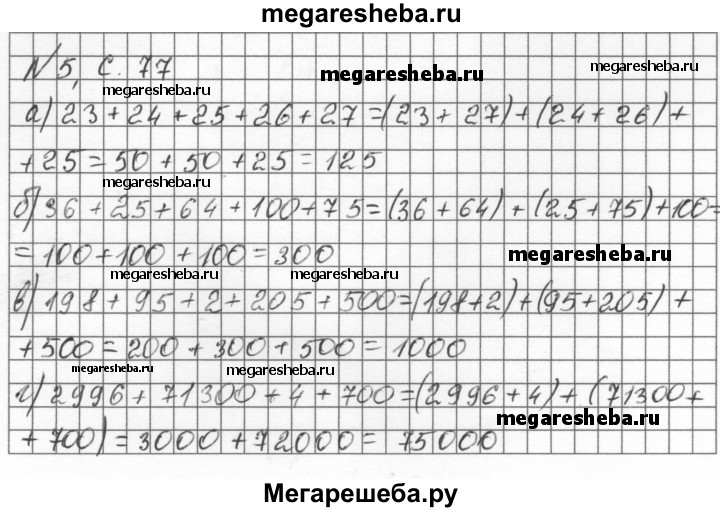 megaresheba.ru
№5, с. 77
megaresheba.ru
megaresheba.ru
megaresheba.ru
а) 23 + 24 + 25 + 26 + 27 = (23 + 27) + (24 + 26) +
megaresheba.ru
+ 25 = 50 + 50 + 25 = 125
megaresheba.ru
б) 36 + 25 + 64 + 100 + 75 = (36 + 64) + (25 + 75) + 100 =
= 100 + 100 + 100 = 300
megaresheba.ru
megaresheba.ru
megaresheba.ru
в) 198 + 95 + 2 + 205 + 500 = (198 + 2) + (95 + 205) +
+ 500 = 200 + 300 + 500 = 1000
megaresheba.ru
megaresheba.ru
г) 2996 + 71300 + 4 + 700 = (2996 + 4) + (71300 +
megaresheba.ru
+ 700) = 3000 + 72000 = 75000
Мегарешеба.ру